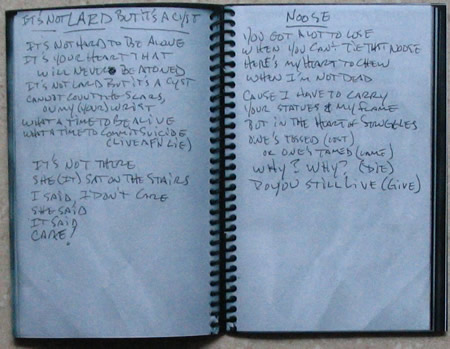 IT'S NOT LARD BUT IT'S A CYST
IT'S NOT HARD TO BE ALONE
IT'S YOUR HEART THAT
WILL NEVER BE ATONED
IT'S NOT LARD BUT IT'S A CYST
CANNOT COUNT THE SCARS,
ON MY (YOUR) WRIST
WHAT A TIME TO BE ALIVE
WHAT A TIME TO COMMIT SUICIDE
(LIVE A LIE)
IT'S NOT THERE
SHE (IT) SAT ON THE STAIRS
I SAID, I DON'T CARE
SHE SAID
IT SAID
CARE!
NOOSE
YOU GOT A LOT TO LOSE
WHEN YOU CAN'T TIE THAT NOOSE
HERE'S MY HEART TO CHEW
WHEN I'M NOT DEAD
CAUSE I HAVE TO CARRY
YOUR STATUES & MY FLAME
BUT IN THE HEART OF STRUGGLES
ONE'S TOSSED (LOST)
OR ONE'S TAMED (LAME)
WHY? WHY? (DIE)
DO YOU STILL LIVE (GIVE)